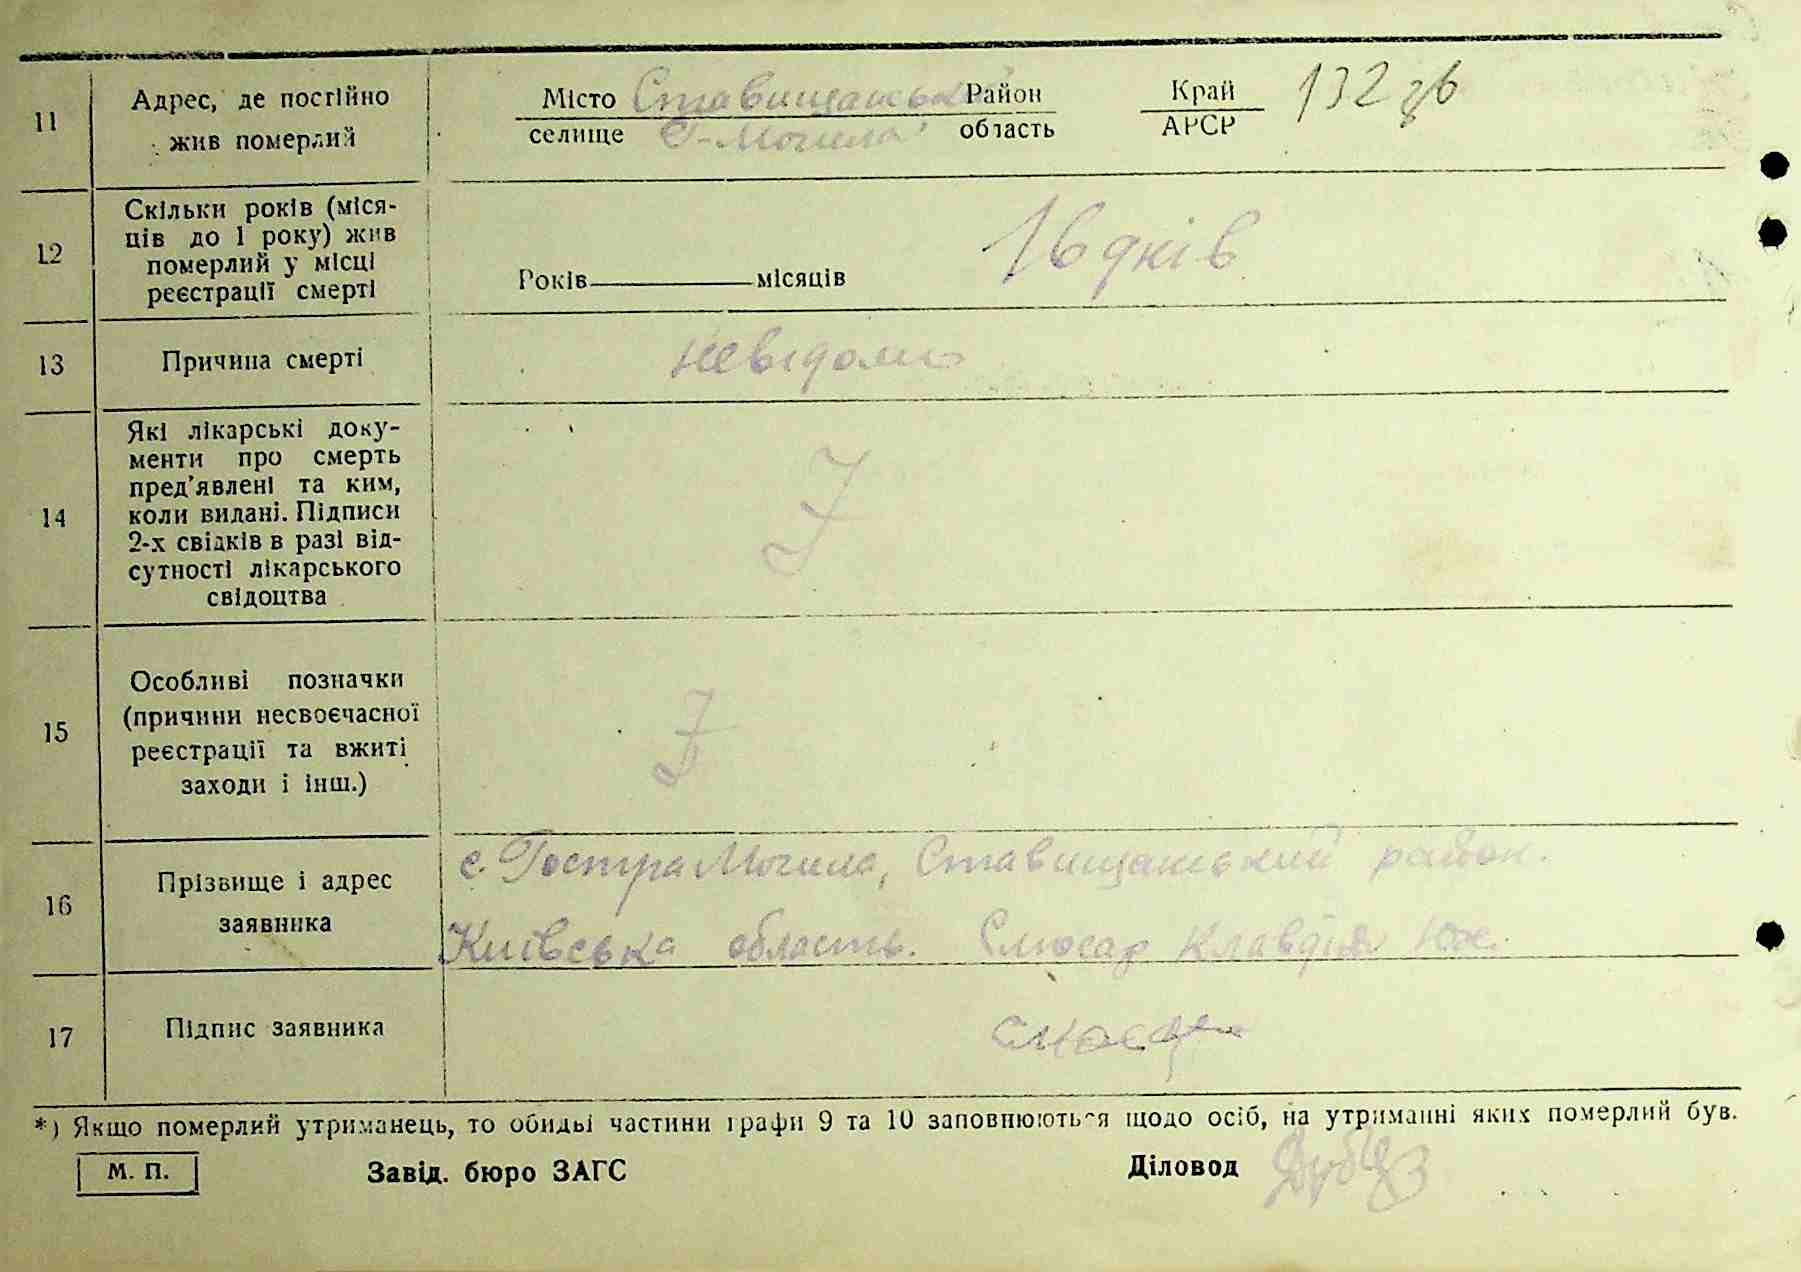 11 Адрес, де постійно жив померлий
Місто Ставищанськ Район Край 132 зв
селище Г-Могила область АРСР
12 Скільки років (міся-
ців до 1 року) жив
померлий у місці
реєстрації смерті
Років місяців 16 днів
13 Причина смерті невідома
14 Які лікарські доку-
менти про смерть
пред'явлені та ким,
коли видані. Підписи
2-х свідків в разі від-
сутності лікарського
свідоцтва
15 Особливі позначки
(причини несвоєчасної
реєстрації та вжиті
заходи і інш.)
16 Прізвище і адрес
заявника
с. Гостра Могила, Ставищанський район.
Київська область. Слюсар Клавдія
17 Підпис заявника
*) Якщо померлий утриманець, то обидві частини графи 9 та 10 заповнюються щодо осіб, на утриманні яких померлий був.
М. П. Завід. бюро ЗАГС Діловод